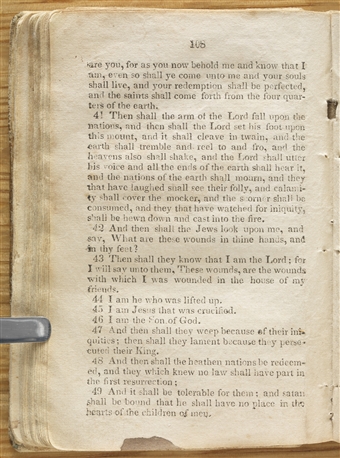 108
are you, for as you now behold me and know that I
am, even so shall ye come unto me and your souls
shall live, and your redemption shall be perfected,
and the saints shall come forth from the four quar-
ters of the earth.
41 Then shall the arm of the Lord fall upon the
nations, and then shall the Lord set his foot upon
this mount, and it shall cleave in twain, and the
earth shall tremble and reel to and fro, and the
heavens also shall shake, and the Lord shall utter
his voice and all the ends of the earth shall hear it,
and the nations of the earth shall mourn, and they
that have laughed shall see their folly, and calami-
ty shall cover the mocker, and the scorner shall be
consumed, and they that have watched for iniquity,
shall be hewn down and cast into the fire.
42 And then shall the Jews look upon me, and
say, What are these wounds in thine hands, and
in thy feet?
43 Then shall they know that I am the Lord; for
I will say unto them, These wounds, are the wounds
with which I was wounded in the house of my
friends.
44 I am he who was lifted up.
45 I am Jesus that was crucified.
46 I am the Son of God.
47 And then shall they weep because of their ini-
quities; then shall they lament because they perse-
cuted their King.
48 And then shall the heathen nations be redeem-
ed, and they which knew no law shall have part in
the first resurrection;
49 And it shall be tolerable for them; and satan
shall be bound that he shall have no place in the
hearts of the children of men.